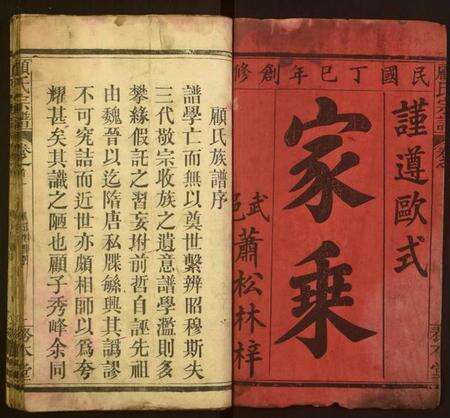 顧氏宗譜
卷之
民國丁巳年創修
謹遵歐式
家乘
武邑蕭松林梓
顧氏族譜序
譜學亡而無以奠世繫辨昭穆斯失
三代敬宗收族之遺意譜學濫則多
攀緣假託之習妄拊前哲自誣先祖
由魏晉以迄隋唐私牒緐興其譌謬
不可究詰而近世亦頗相師以爲夸
耀甚矣其識之陋也顧子秀峰余同
顧氏宗譜
卷之首
務本堂